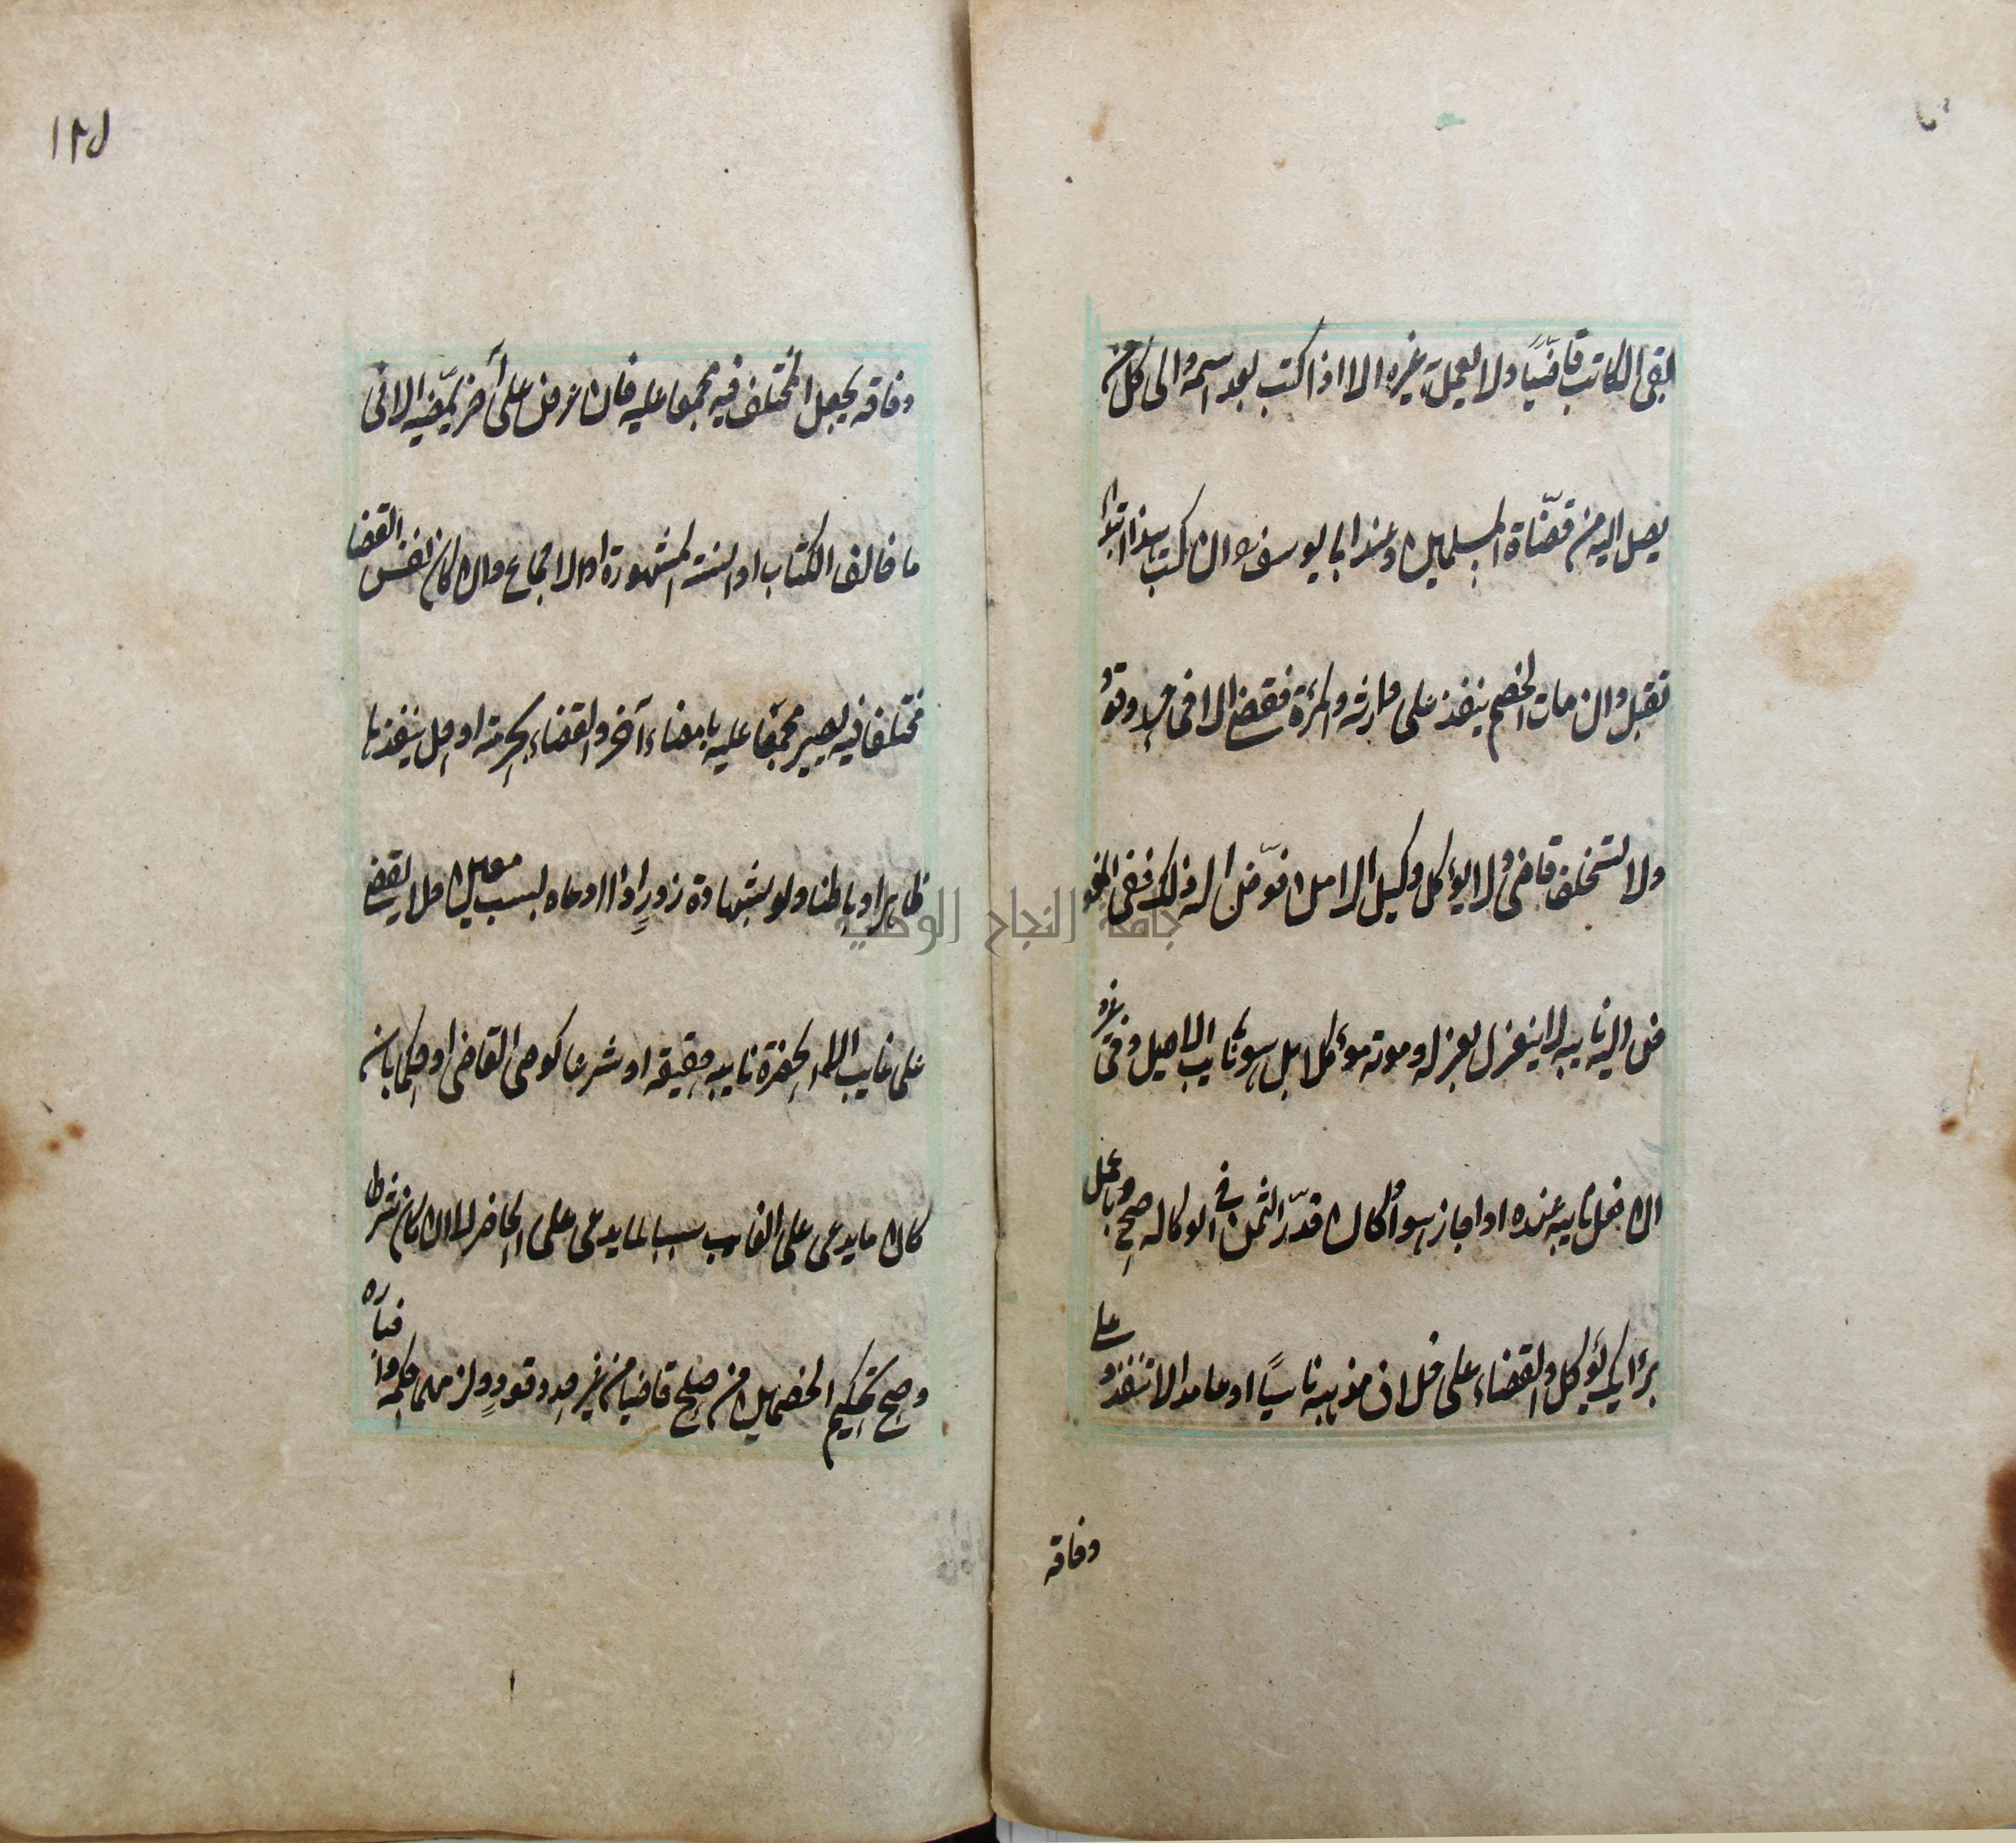 بقى الكاتب قاضيًا ولا يعمل به غيره الا اذا كتب بعد اسمه والى كل من
يصل اليه من قضّاة المسلمين وعند ابى يوسف وان كتب بهذا ابتداء
تقبل وان مات الخصم ينفذ على وارثه والمرءة تقضى الا فى حد وقود
ولا يستخلف قاض ولا يوءكل وكيل الا من فوّض اليه ذلك ففى المفو
ض اليه نايبه لا ينعزل بعزله وموته موءكلا بل هو نايب الاصيل وفى غيره
ان فعل نايبه عنده او اجاز هو او كان قدّر الثمن فى الوكاله صح ويعمل
براى يوكل والقضاء على خلاف مذهبه ناسيًا او عامدا لا تنفذ وعلى
وفاقه
١٢٥
وفاقه يجعل المختلف فيه مجمعا عليه فان عرض على آخر يمضيه الا فى
ما خالف الكتاب او السنته المشهورة او الاجماع وان كان نفس القضا
مختلفا فيه يصير مجمعا عليه بامضاء آخر والقضاء بحرمته او حل ينفذ
ظاهرا وباطنا ولو بشهادة زورٍ اذا ادعاه بسبب معين ولا يقضى
على غايب الا بحضرة نايبه حقيقه او شرعا كوصى القاضى او حكما بان
كان ما يدعى على الغايب سببا لما يدعى على الحاضر لا ان كان شرطا
وصح تحكيم الخصمين من صلح قاضيا من غير حد وقودٍ ولزمهما حكمه
جامعة النجاح الوطنية